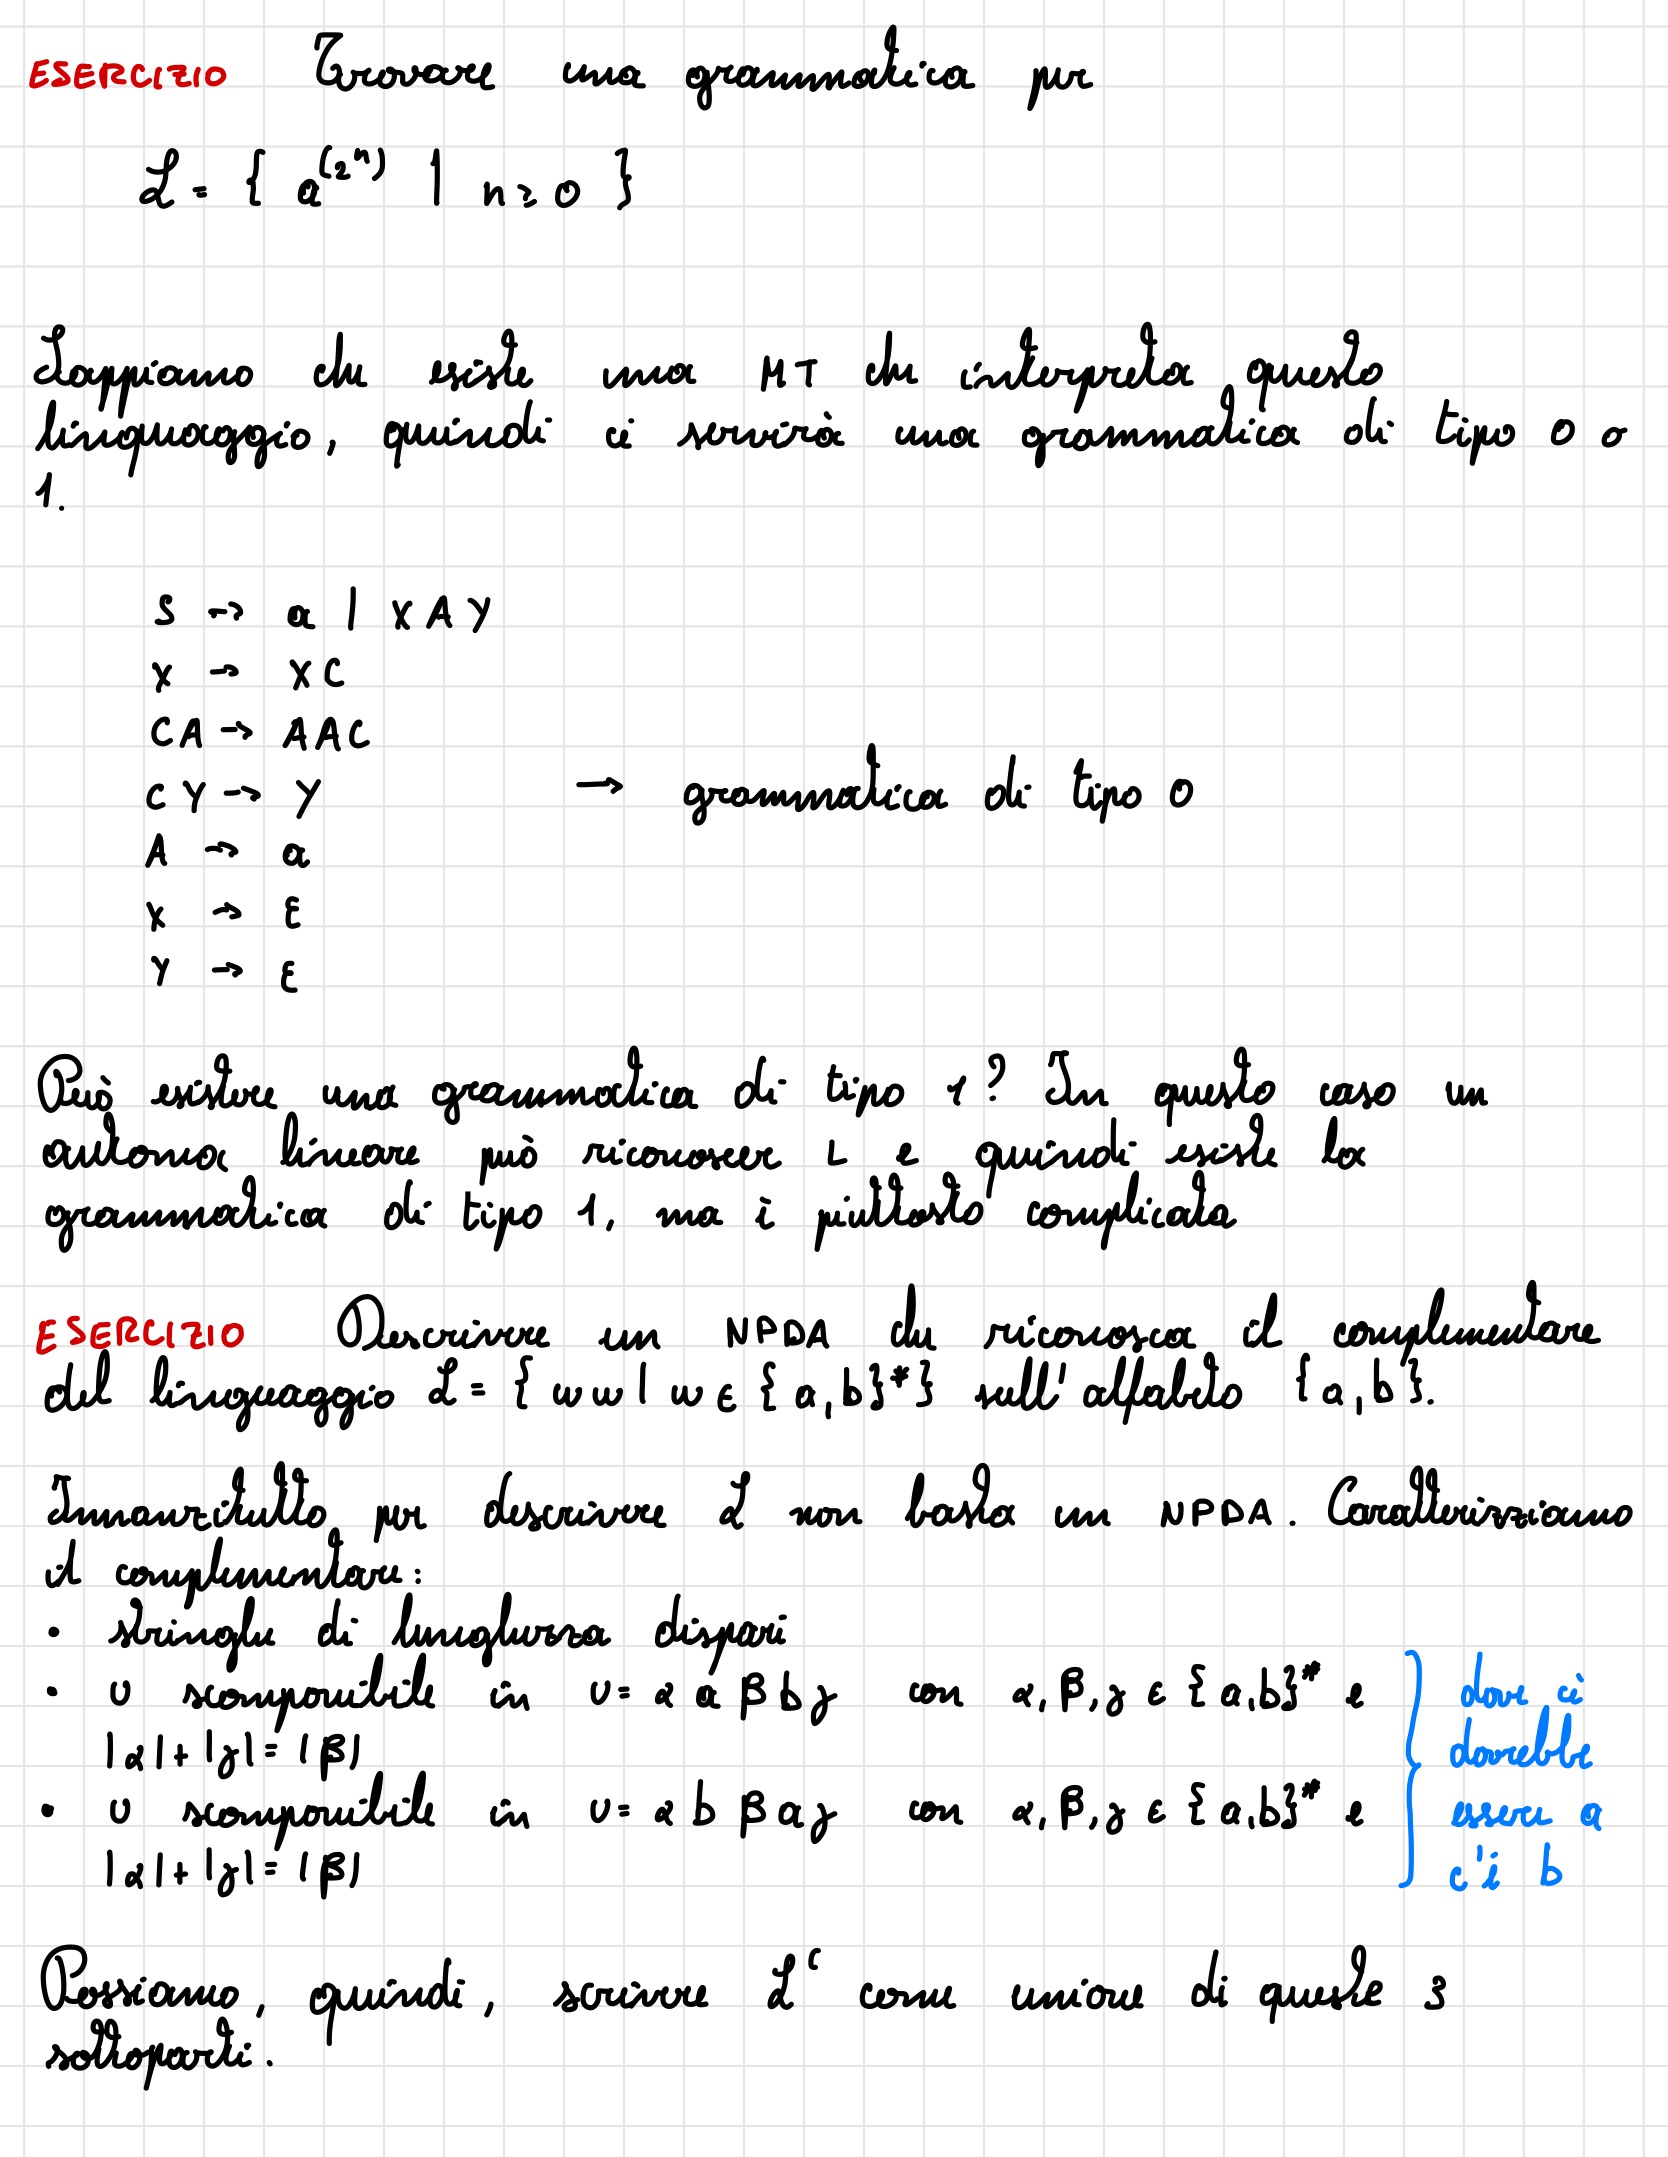 ESERCIZIO Trovare una grammatica per
L = { a^(2^n) | n ≥ 0 }
Sappiamo che esiste una MT che interpreta questo
linguaggio, quindi ci servirà una grammatica di tipo 0 o
1.
S → a | XAY
X → XC
CA → AAC
CY → Y → grammatica di tipo 0
A → a
X → ε
Y → ε
Può esistere una grammatica di tipo 1? In questo caso un
automa lineare può riconoscere L e quindi esiste la
grammatica di tipo 1, ma è piuttosto complicata
ESERCIZIO Descrivere un NPDA che riconosca il complementare
del linguaggio L = { ww | w ∈ {a,b}* } sull'alfabeto {a,b}.
Innanzitutto per descrivere L non basta un NPDA. Caratterizziamo
il complementare:
• stringhe di lunghezza dispari
• υ scomponibile in υ = α a β b γ con α, β, γ ∈ {a,b}* e dove ci
|α| + |γ| = |β| dovrebbe
• υ scomponibile in υ = α b β a γ con α, β, γ ∈ {a,b}* e essere a
|α| + |γ| = |β| c'è b
Possiamo, quindi, scrivere L^c come unione di queste 3
sottoparti.